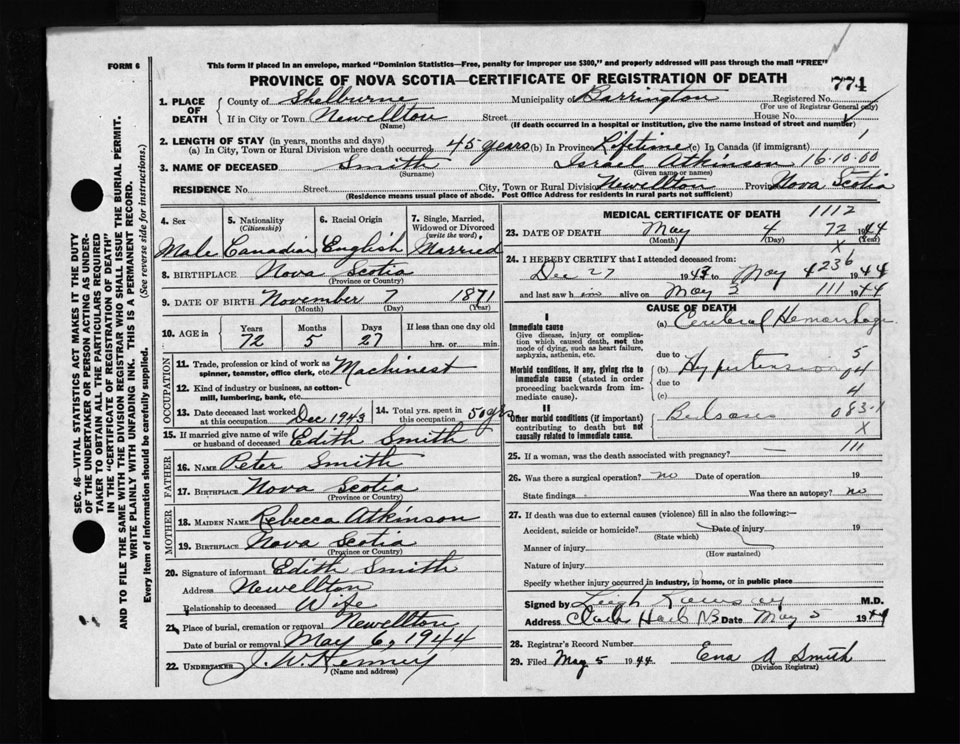 FORM 6
This form if placed in an envelope, marked "Dominion Statistics—Free, penalty for improper use $300," and properly addressed will pass through the mail "FREE"
PROVINCE OF NOVA SCOTIA—CERTIFICATE OF REGISTRATION OF DEATH
774
1. PLACE OF DEATH
County of Shelburne Municipality of Barrington Registered No.
(For use of Registrar General only)
If in City or Town Newellton Street House No.
(Name) (If death occurred in a hospital or institution, give the name instead of street and number)
2. LENGTH OF STAY (in years, months and days)
(a) In City, Town or Rural Division where death occurred 45 years (b) In Province Lifetime (c) In Canada (if immigrant)
3. NAME OF DECEASED Smith Israel Atkinson 16-10-00
(Surname) (Given name or names)
RESIDENCE No. Street City, Town or Rural Division Newellton Province Nova Scotia
(Residence means usual place of abode. Post Office Address for residents in rural parts not sufficient)
4. Sex Male
5. Nationality (Citizenship) Canadian
6. Racial Origin English
7. Single, Married, Widowed or Divorced (write the word) Married
8. BIRTHPLACE Nova Scotia
(Province or Country)
9. DATE OF BIRTH November 7 1871
(Month) (Day) (Year)
10. AGE in Years Months Days If less than one day old
72 5 27 hrs. or min.
OCCUPATION
11. Trade, profession or kind of work as spinner, teamster, office clerk, etc. Machinest
12. Kind of industry or business, as cotton-mill, lumbering, bank, etc.
13. Date deceased last worked at this occupation Dec 1943
14. Total yrs. spent in this occupation 50 yrs
15. If married give name of wife or husband of deceased Edith Smith
FATHER
16. NAME Peter Smith
17. BIRTHPLACE Nova Scotia
(Province or Country)
MOTHER
18. MAIDEN NAME Rebecca Atkinson
19. BIRTHPLACE Nova Scotia
(Province or Country)
20. Signature of informant Edith Smith
Address Newellton
Relationship to deceased Wife
21. Place of burial, cremation or removal Newellton
Date of burial or removal May 6, 1944
22. UNDERTAKER J. W. Kenney
(Name and address)
MEDICAL CERTIFICATE OF DEATH 1112
23. DATE OF DEATH May 4 72 1944
(Month) (Day) (Year)
X
24. I HEREBY CERTIFY that I attended deceased from:
Dec 27 1943 to May 4 236 1944
and last saw him alive on May 3 111 1944
CAUSE OF DEATH
I
Immediate cause (a) Cerebral Hemorrhage
Give disease, injury or complication which caused death, not the mode of dying, such as heart failure, asphyxia, asthenia, etc.
due to 5
Morbid conditions, if any, giving rise to immediate cause (stated in order proceeding backwards from immediate cause). (b) Hypertension 04
due to
(c) 4
II
Other morbid conditions (if important) contributing to death but not causally related to immediate cause. Bedsores 083-1
X
25. If a woman, was the death associated with pregnancy? — 111
26. Was there a surgical operation? no Date of operation 19
State findings Was there an autopsy? no
27. If death was due to external causes (violence) fill in also the following:—
Accident, suicide or homicide? Date of injury 19
(State which)
Manner of injury
(How sustained)
Nature of injury
Specify whether injury occurred in industry, in home, or in public place
Signed by Leigh M.D.
Address Clarks Harb NS Date May 5 1944
28. Registrar's Record Number
29. Filed May 5 1944 Ena A Smith
(Division Registrar)
SEC. 46—VITAL STATISTICS ACT MAKES IT THE DUTY
OF THE UNDERTAKER OR PERSON ACTING AS UNDER-
TAKER TO OBTAIN ALL THE PARTICULARS REQUIRED
IN THE "CERTIFICATE OF REGISTRATION OF DEATH"
AND TO FILE THE SAME WITH THE DIVISION REGISTRAR WHO SHALL ISSUE THE BURIAL PERMIT.
WRITE PLAINLY WITH UNFADING INK. THIS IS A PERMANENT RECORD.
Every item of information should be carefully supplied. (See reverse side for instructions.)